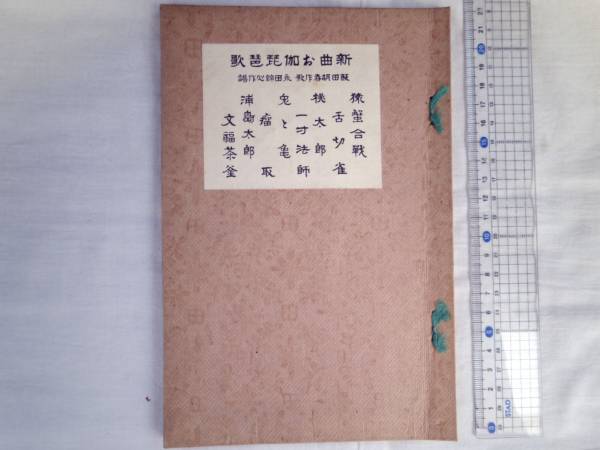 新曲お伽琵琶歌
飯田胡春作歌 永田錦心作譜
猿蟹合戦
舌切雀
桃太郎
一寸法師
兎と亀
瘤取
浦島太郎
文福茶釜
STAD